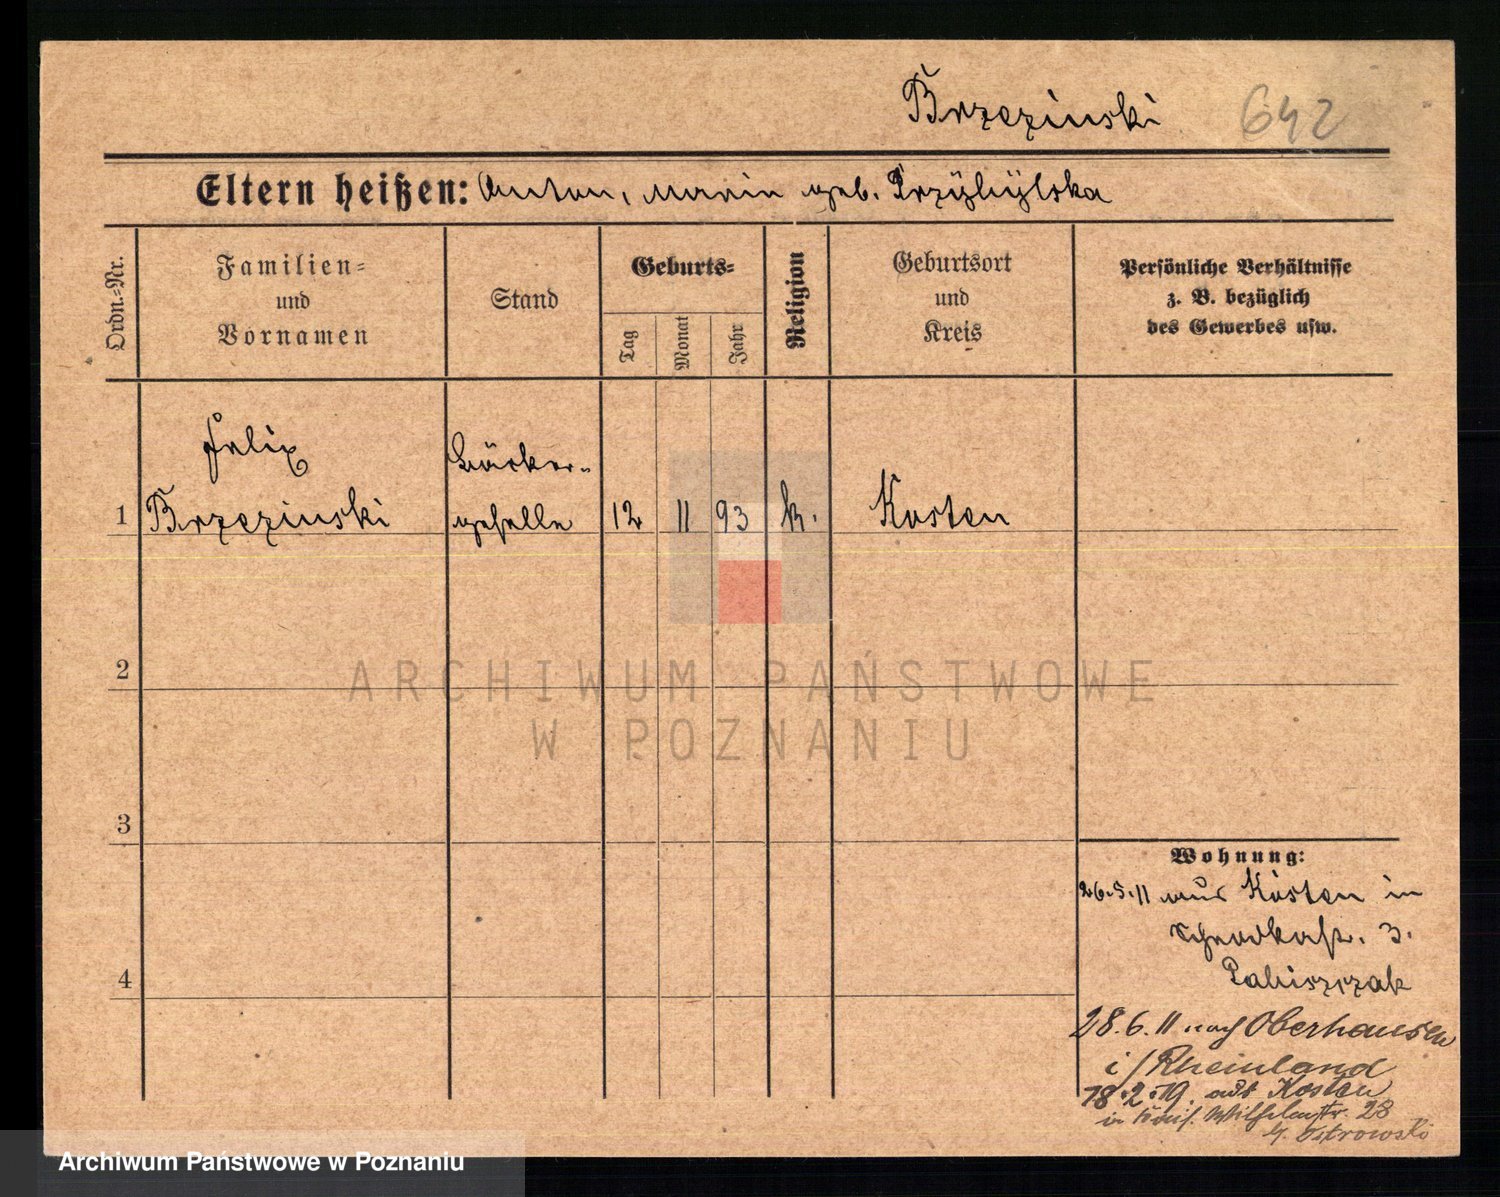 Brzezinski 642
Eltern heißen: Anton, Maria geb. Przybylska
Ordn.-Nr.
Familien-
und
Vornamen
Stand
Geburts-
Tag
Monat
Jahr
Religion
Geburtsort
und
Kreis
Persönliche Verhältnisse
z. B. bezüglich
des Gewerbes usw.
Felix
Bäcker-
1 Brzezinski geselle 12 11 93 k. Kosten
2
ARCHIWUM PAŃSTWOWE
W POZNANIU
3
Wohnung:
26.5.11 aus Kosten in
3.
Pabiszczak
4
28.6.11 nach Oberhausen
i/Rheinland
18.2.19. aus Kosten
in Wilhelmstr. 28
Ostrowski
Archiwum Państwowe w Poznaniu